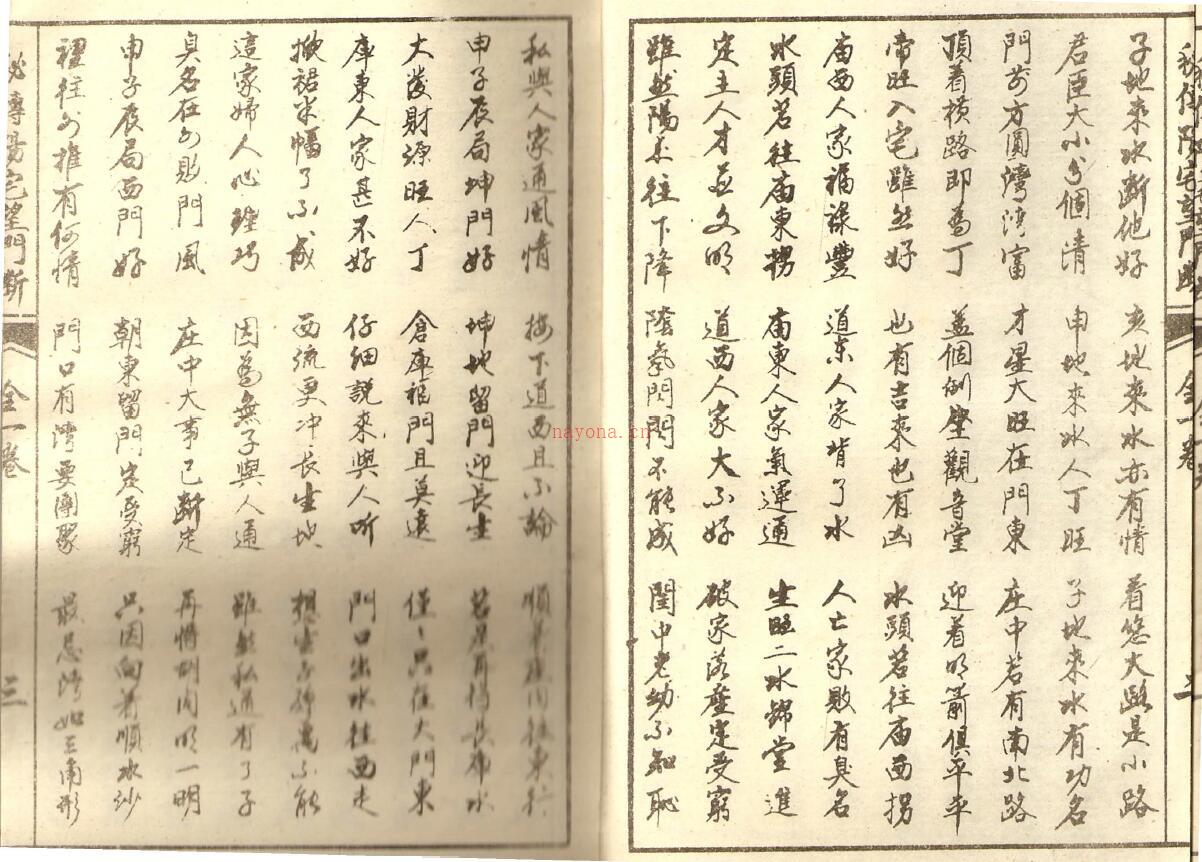 子地來水斷他好　亥地來水亦有情　看悠大路是小路
君臣大小分個清　申地來水人丁旺　子地來水有功名
門前方圓灣灣富　才星大旺在門東　庄中若有南北路
頂着橫路即為丁　蓋個倒座觀音堂　迎着明箭俱平平
帝旺入宅雖然好　也有吉來也有凶　水頭若往庙西拐
庙西人家福祿豐　道东人家背了水　人亡家敗有臭名
水頭若往庙東拐　庙東人家氣運通　生旺二水錦堂進
定主人才並文明　道西人家大不好　破家落產定受窮
雖然陽氣往下降　陰氣閃閃不能成　閨中老幼不知恥
私與人家通風情　接下道西且不論
申子辰局坤門好　坤地留門迎長生
大發財源旺人丁　倉庫福門且莫遠　僅々只在大門東
庫東人家甚不好　仔細説來與人听　門口出水往西走
掀裙米幅了不成　西流更冲長生坟
這家婦人心轻巧　因為無子與人通　雖然私通有了子
臭名在外敗門風　庄中大事已斷定　再將胡同明一明
申子辰局西門好　朝東留門定受窮　只因向着順水沙
裡往外推有何情　門口有灣要團聚　最忌灣如三角形
秘傳陽宅望門斷
全一卷
三